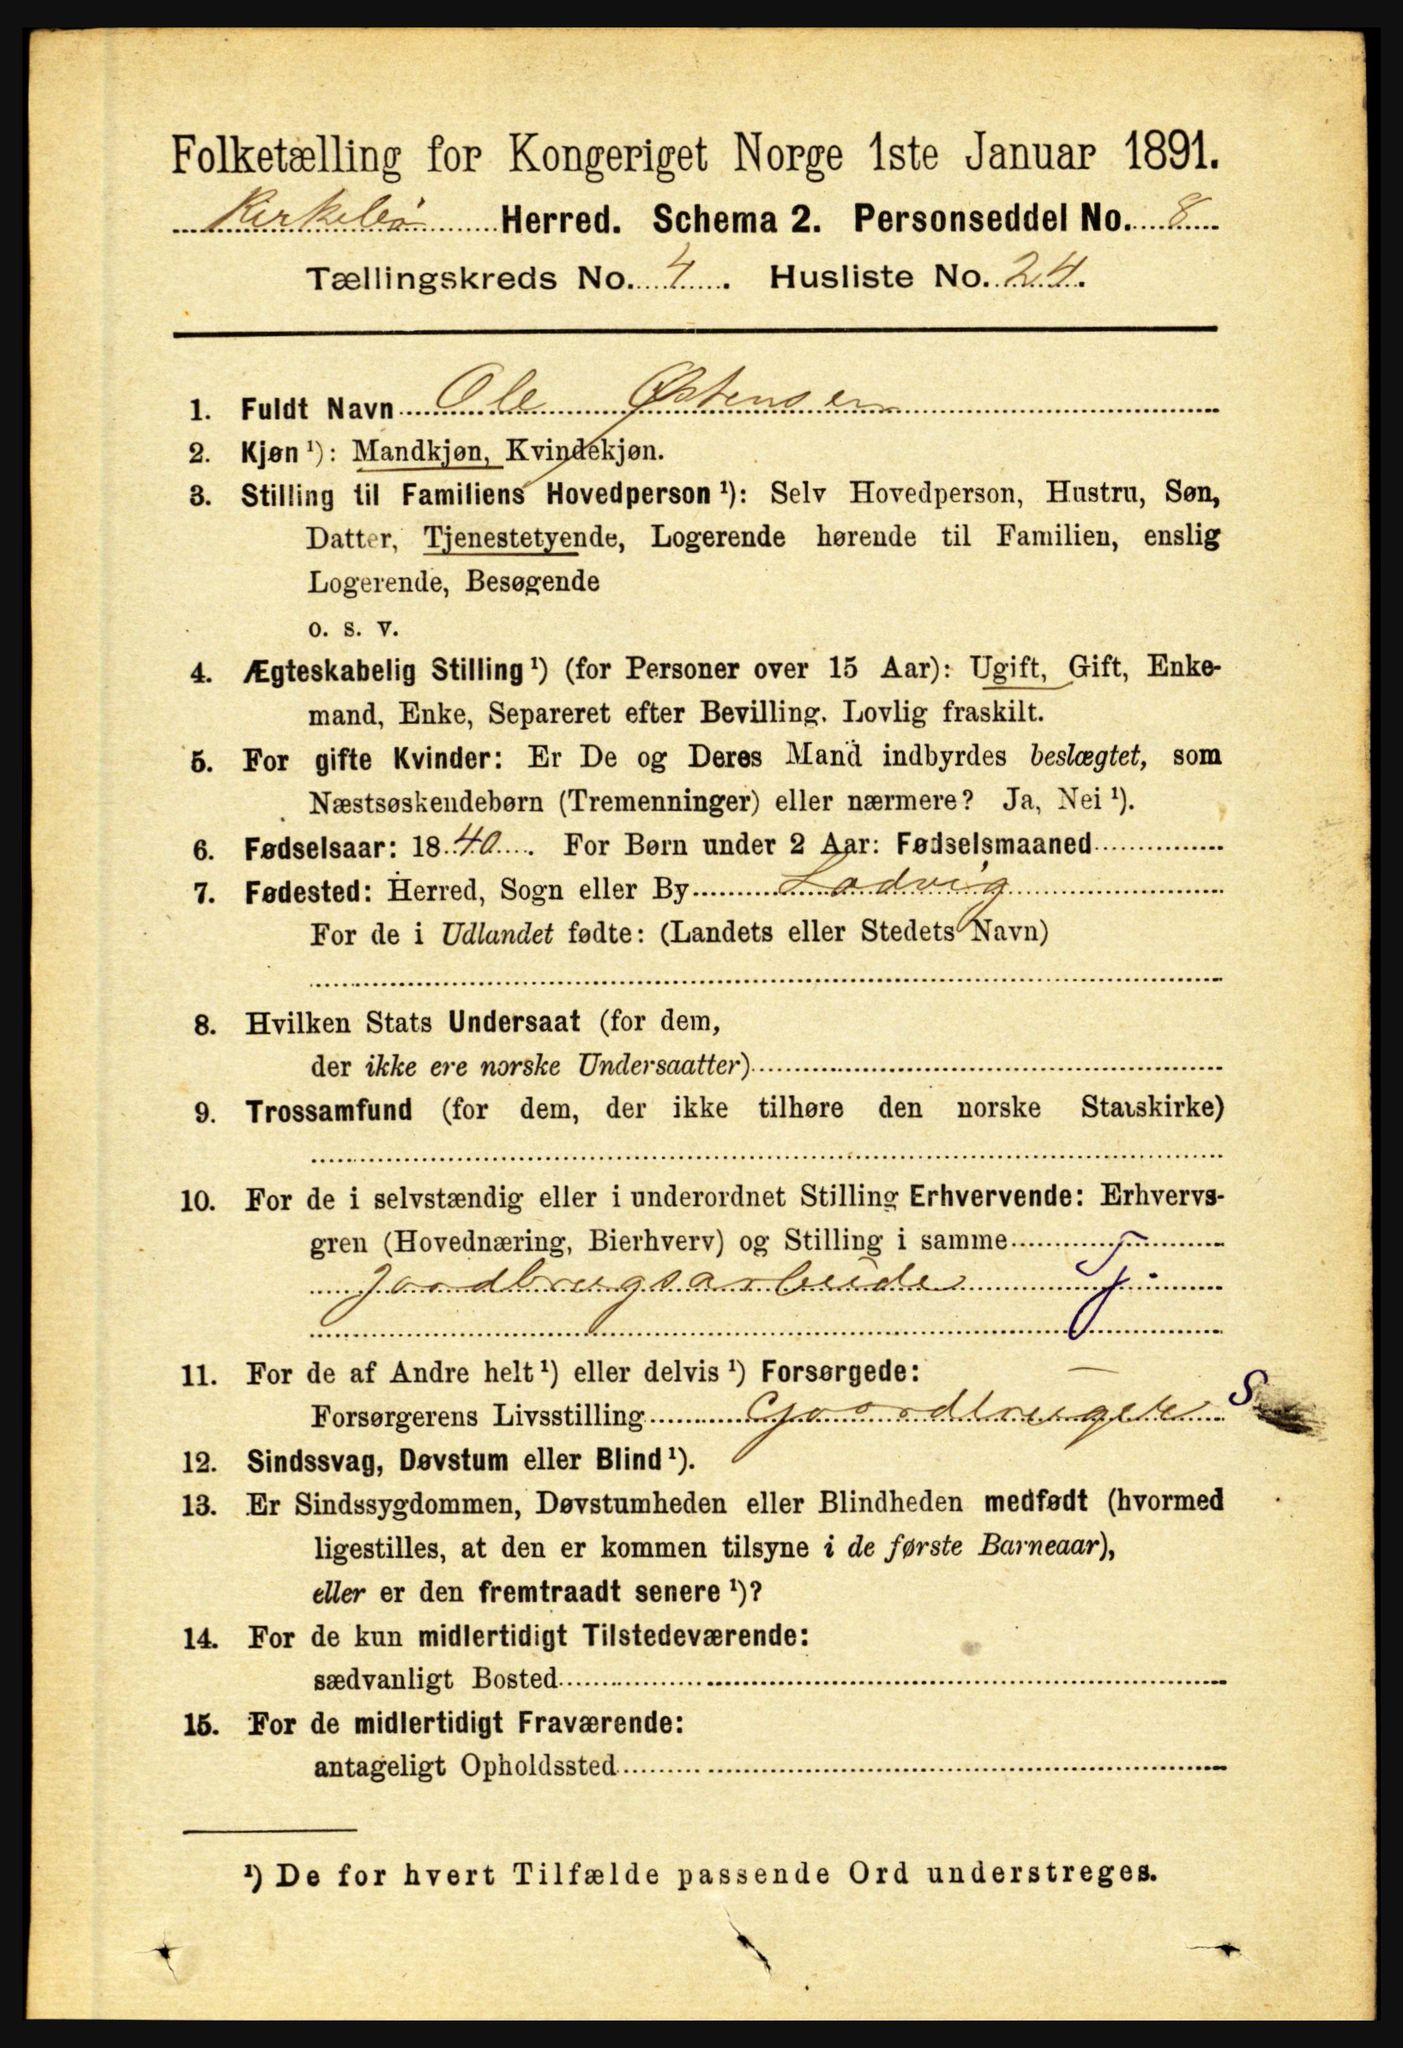 Folketælling for Kongeriget Norge 1ste Januar 1891.
Kirkebö Herred. Schema 2. Personseddel No. 8
Tællingskreds No. 4. Husliste No. 24.
1. Fuldt Navn Ole Østensen
2. Kjøn ¹): Mandkjøn, Kvindekjøn.
3. Stilling til Familiens Hovedperson ¹): Selv Hovedperson, Hustru, Søn,
Datter, Tjenestetyende, Logerende hørende til Familien, enslig
Logerende, Besøgende
o. s. v.
4. Ægteskabelig Stilling ¹) (for Personer over 15 Aar): Ugift, Gift, Enke-
mand, Enke, Separeret efter Bevilling. Lovlig fraskilt.
5. For gifte Kvinder: Er De og Deres Mand indbyrdes beslægtet, som
Næstsøskendebørn (Tremenninger) eller nærmere? Ja, Nei ¹).
6. Fødselsaar: 1840. For Børn under 2 Aar: Fødselsmaaned
7. Fødested: Herred, Sogn eller By Ladvig
For de i Udlandet fødte: (Landets eller Stedets Navn)
8. Hvilken Stats Undersaat (for dem,
der ikke ere norske Undersaatter)
9. Trossamfund (for dem, der ikke tilhøre den norske Statskirke)
10. For de i selvstændig eller i underordnet Stilling Erhvervende: Erhvervs-
gren (Hovednæring, Bierhverv) og Stilling i samme
Jordbrugsarbeide T.
11. For de af Andre helt ¹) eller delvis ¹) Forsørgede:
Forsørgerens Livsstilling Gaardbruger S
12. Sindssvag, Døvstum eller Blind ¹).
13. Er Sindssygdommen, Døvstumheden eller Blindheden medfødt (hvormed
ligestilles, at den er kommen tilsyne i de første Barneaar),
eller er den fremtraadt senere ¹)?
14. For de kun midlertidigt Tilstedeværende:
sædvanligt Bosted
15. For de midlertidigt Fraværende:
antageligt Opholdssted
¹) De for hvert Tilfælde passende Ord understreges.